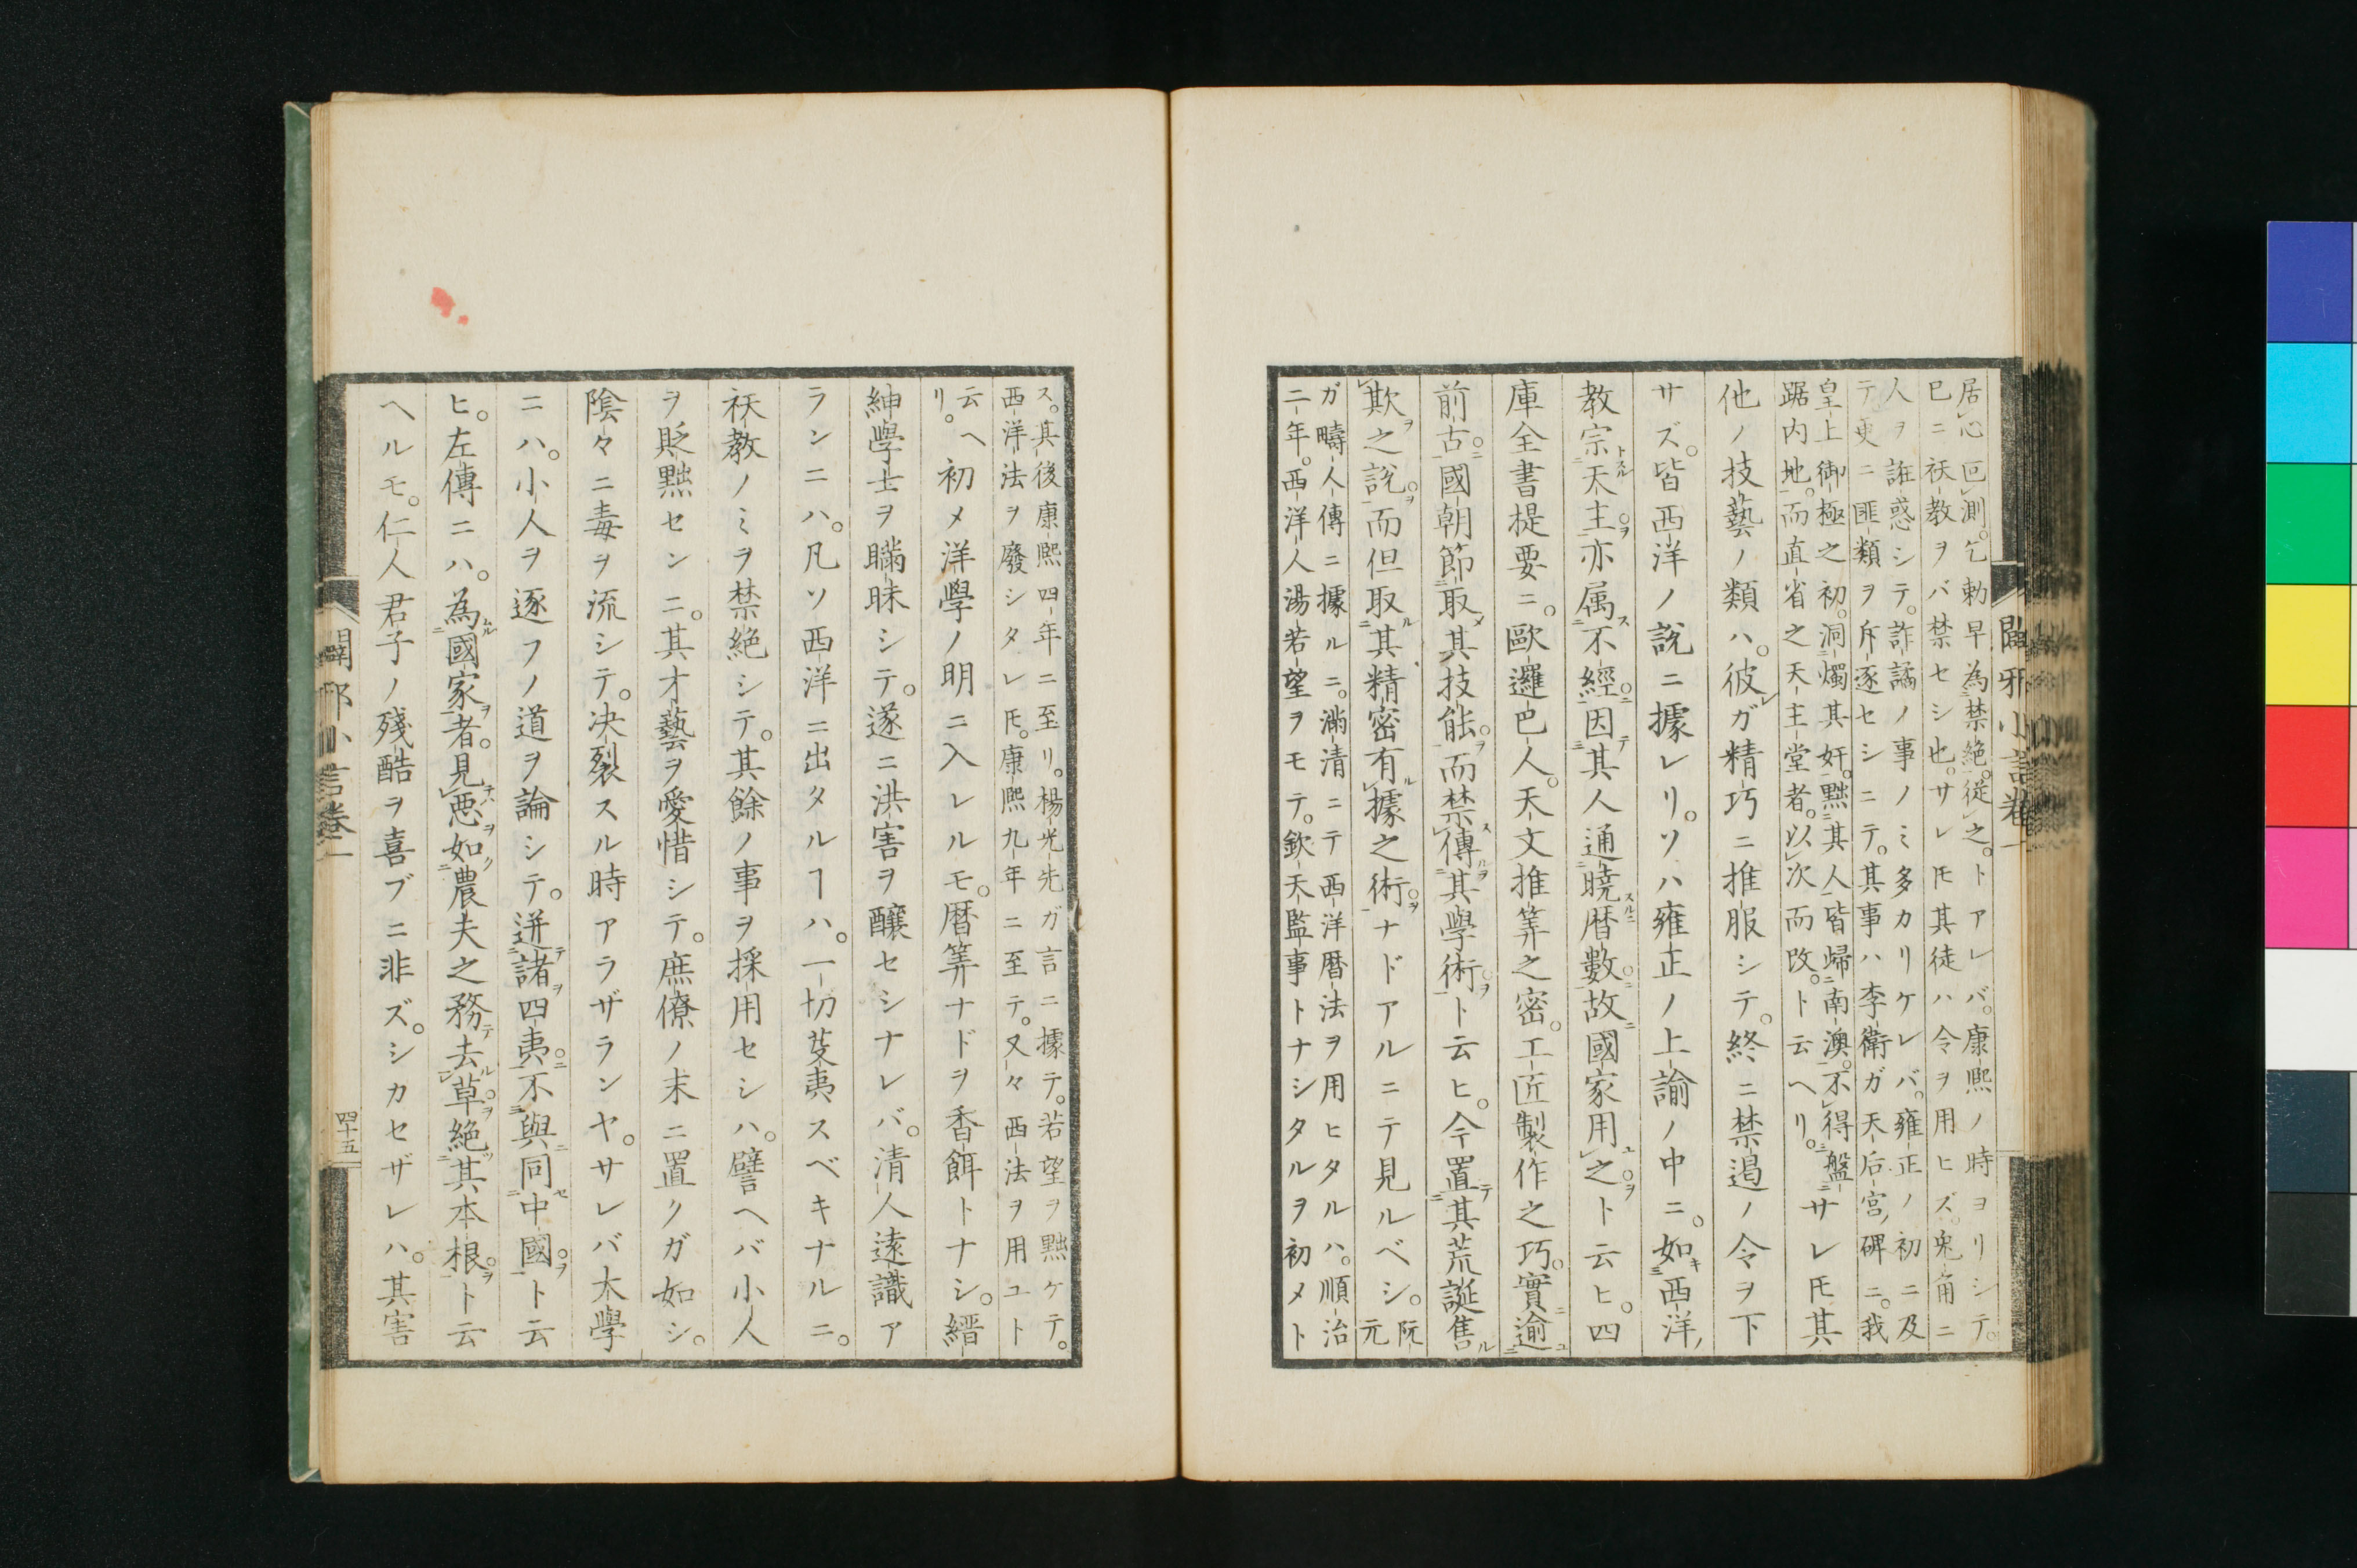 居心叵測。乞勅早為禁絶。従之。トアレバ。康熙ノ時ヨリシテ。
巳ニ祆教ヲバ禁セシ也。サレ𪜈其徒ハ令ヲ用ヒズ。兎角ニ
人ヲ誑惑シテ。詐譎ノ事ノミ多カリケレバ。雍正ノ初ニ及
テ更ニ匪類ヲ斥逐セシニテ。其事ハ李衛ガ天后宮碑ニ。我
皇上御極之初。洞燭其奸。黜其人皆歸南澳。不得盤
踞内地。而直省之天主堂者。以次而改。ト云ヘリ。サレ𪜈其
他ノ技藝ノ類ハ。彼レガ精巧ニ推服シテ。終ニ禁遏ノ令ヲ下
サズ。皆西洋ノ說ニ據レリ。ソハ雍正ノ上諭ノ中ニ。如キ西洋
教宗トスル天主ヲ亦属ス不經ニ因テ其人通曉スルニ暦數ニ故ニ國家用ユ之ヲト云ヒ。四
庫全書提要ニ。歐邏巴人。天文推筭之密。工匠製作之巧。實ニ逾ユ
前古ニ國朝節取メ其技能ヲ而禁スル傳ヲ其學術ヲト云ヒ。今置テ其荒誕售ル
欺ヲ之說ヲ而但取ル其精密有ル據之術ヲナドアルニテ見ルベシ。阮元
ガ疇人傳ニ據ルニ。滿清ニテ西洋暦法ヲ用ヒタルハ。順治
二年。西洋人湯若望ヲモテ。欽天監事トナシタルヲ初メト
闢邪小言卷一
ス。其後康熙四年ニ至リ。楊光先ガ言ニ據テ。若望ヲ黜ケテ。
西洋法ヲ廢シタレ𪜈。康熙九年ニ至テ。又々西法ヲ用ユト
云ヘリ。初メ洋學ノ明ニ入レルモ。暦筭ナドヲ香餌トナシ。縉
紳學士ヲ瞞昧シテ。遂ニ洪害ヲ釀セシナレバ。清人遠識ア
ランニハ。凡ソ西洋ニ出タルヿハ。一切芟夷スベキナルニ。
祆教ノミヲ禁絶シテ。其餘ノ事ヲ採用セシハ。譬ヘバ小人
ヲ貶黜センニ。其才藝ヲ愛惜シテ。庶僚ノ末ニ置クガ如シ。
陰々ニ毒ヲ流シテ。决裂スル時アラザランヤ。サレバ大學
ニハ。小人ヲ逐フノ道ヲ論シテ。迸テ諸ヲ四夷ニ不與ニ同セ中國ヲト云
ヒ。左傳ニハ。為ムル國家ヲ者。見ルハ悪ヲ如ク農夫之務テ去ル草ヲ絶ツ其本根ヲト云
ヘルモ。仁人君子ノ殘酷ヲ喜ブニ非ズ。シカセザレハ。其害
闢邪小言卷一
四十五